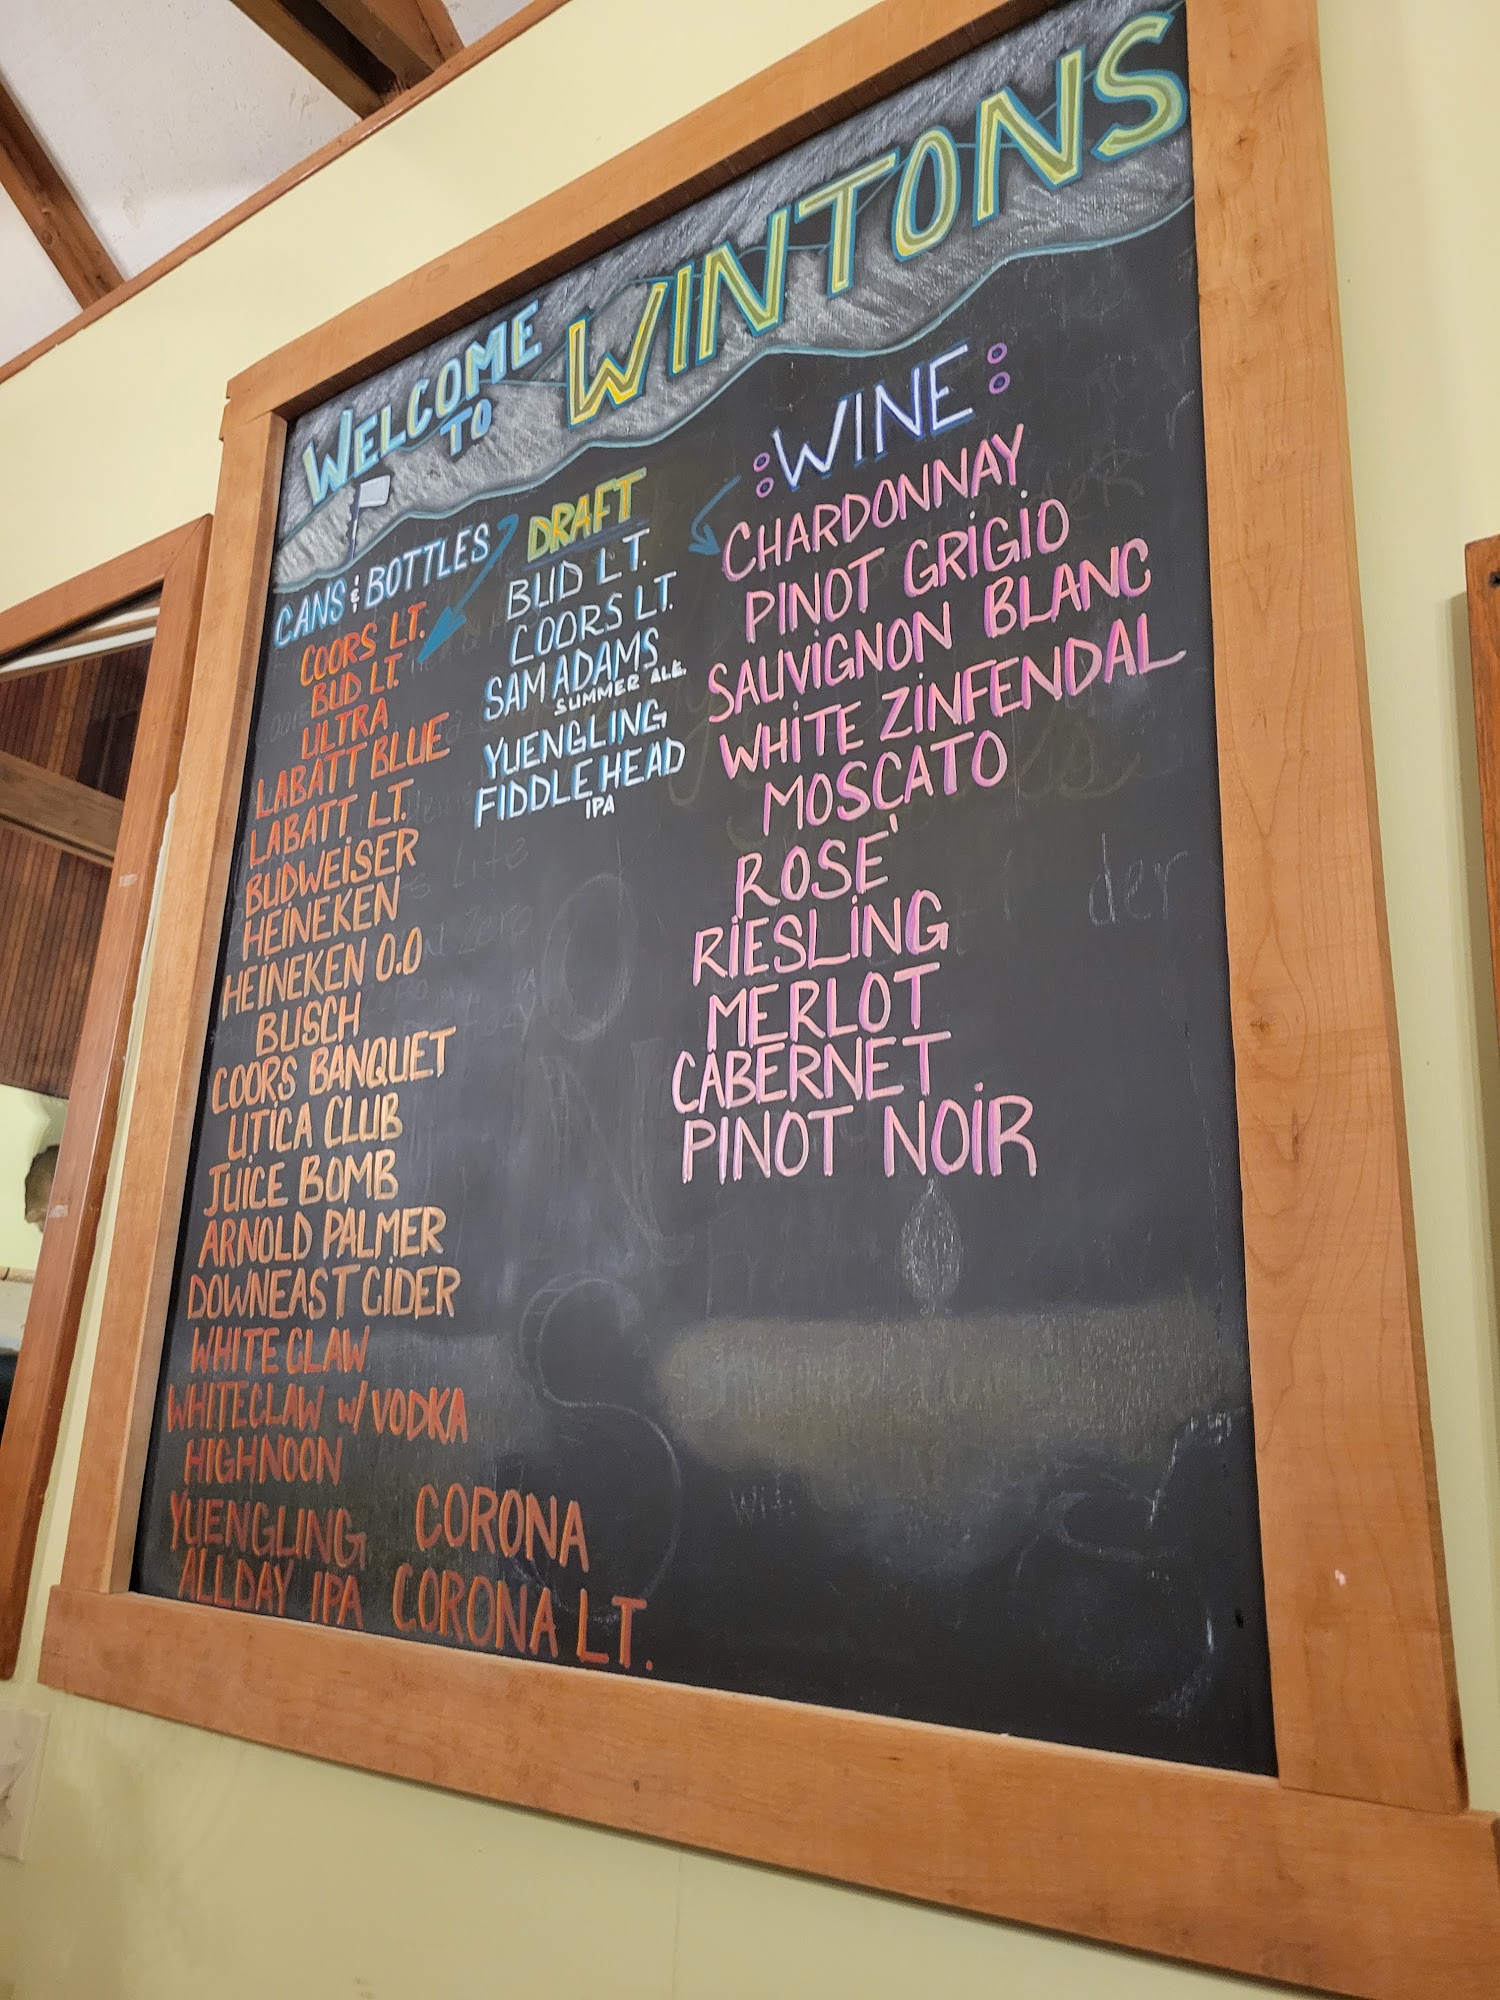 WELCOME
TO
WINTONS
CANS & BOTTLES
COORS LT.
BUD LT.
ULTRA
LABATT BLUE
LABATT LT.
BUDWEISER
HEINEKEN
HEINEKEN 0.0
BUSCH
COORS BANQUET
UTICA CLUB
JUICE BOMB
ARNOLD PALMER
DOWNEAST CIDER
WHITE CLAW
WHITECLAW w/ VODKA
HIGHNOON
YUENGLING
ALLDAY IPA
CORONA
CORONA LT.
DRAFT
BUD LT.
COORS LT.
SAM ADAMS
SUMMER ALE.
YUENGLING
FIDDLE HEAD
IPA
:WINE:
CHARDONNAY
PINOT GRIGIO
SAUVIGNON BLANC
WHITE ZINFENDAL
MOSCATO
ROSE'
RIESLING
MERLOT
CABERNET
PINOT NOIR